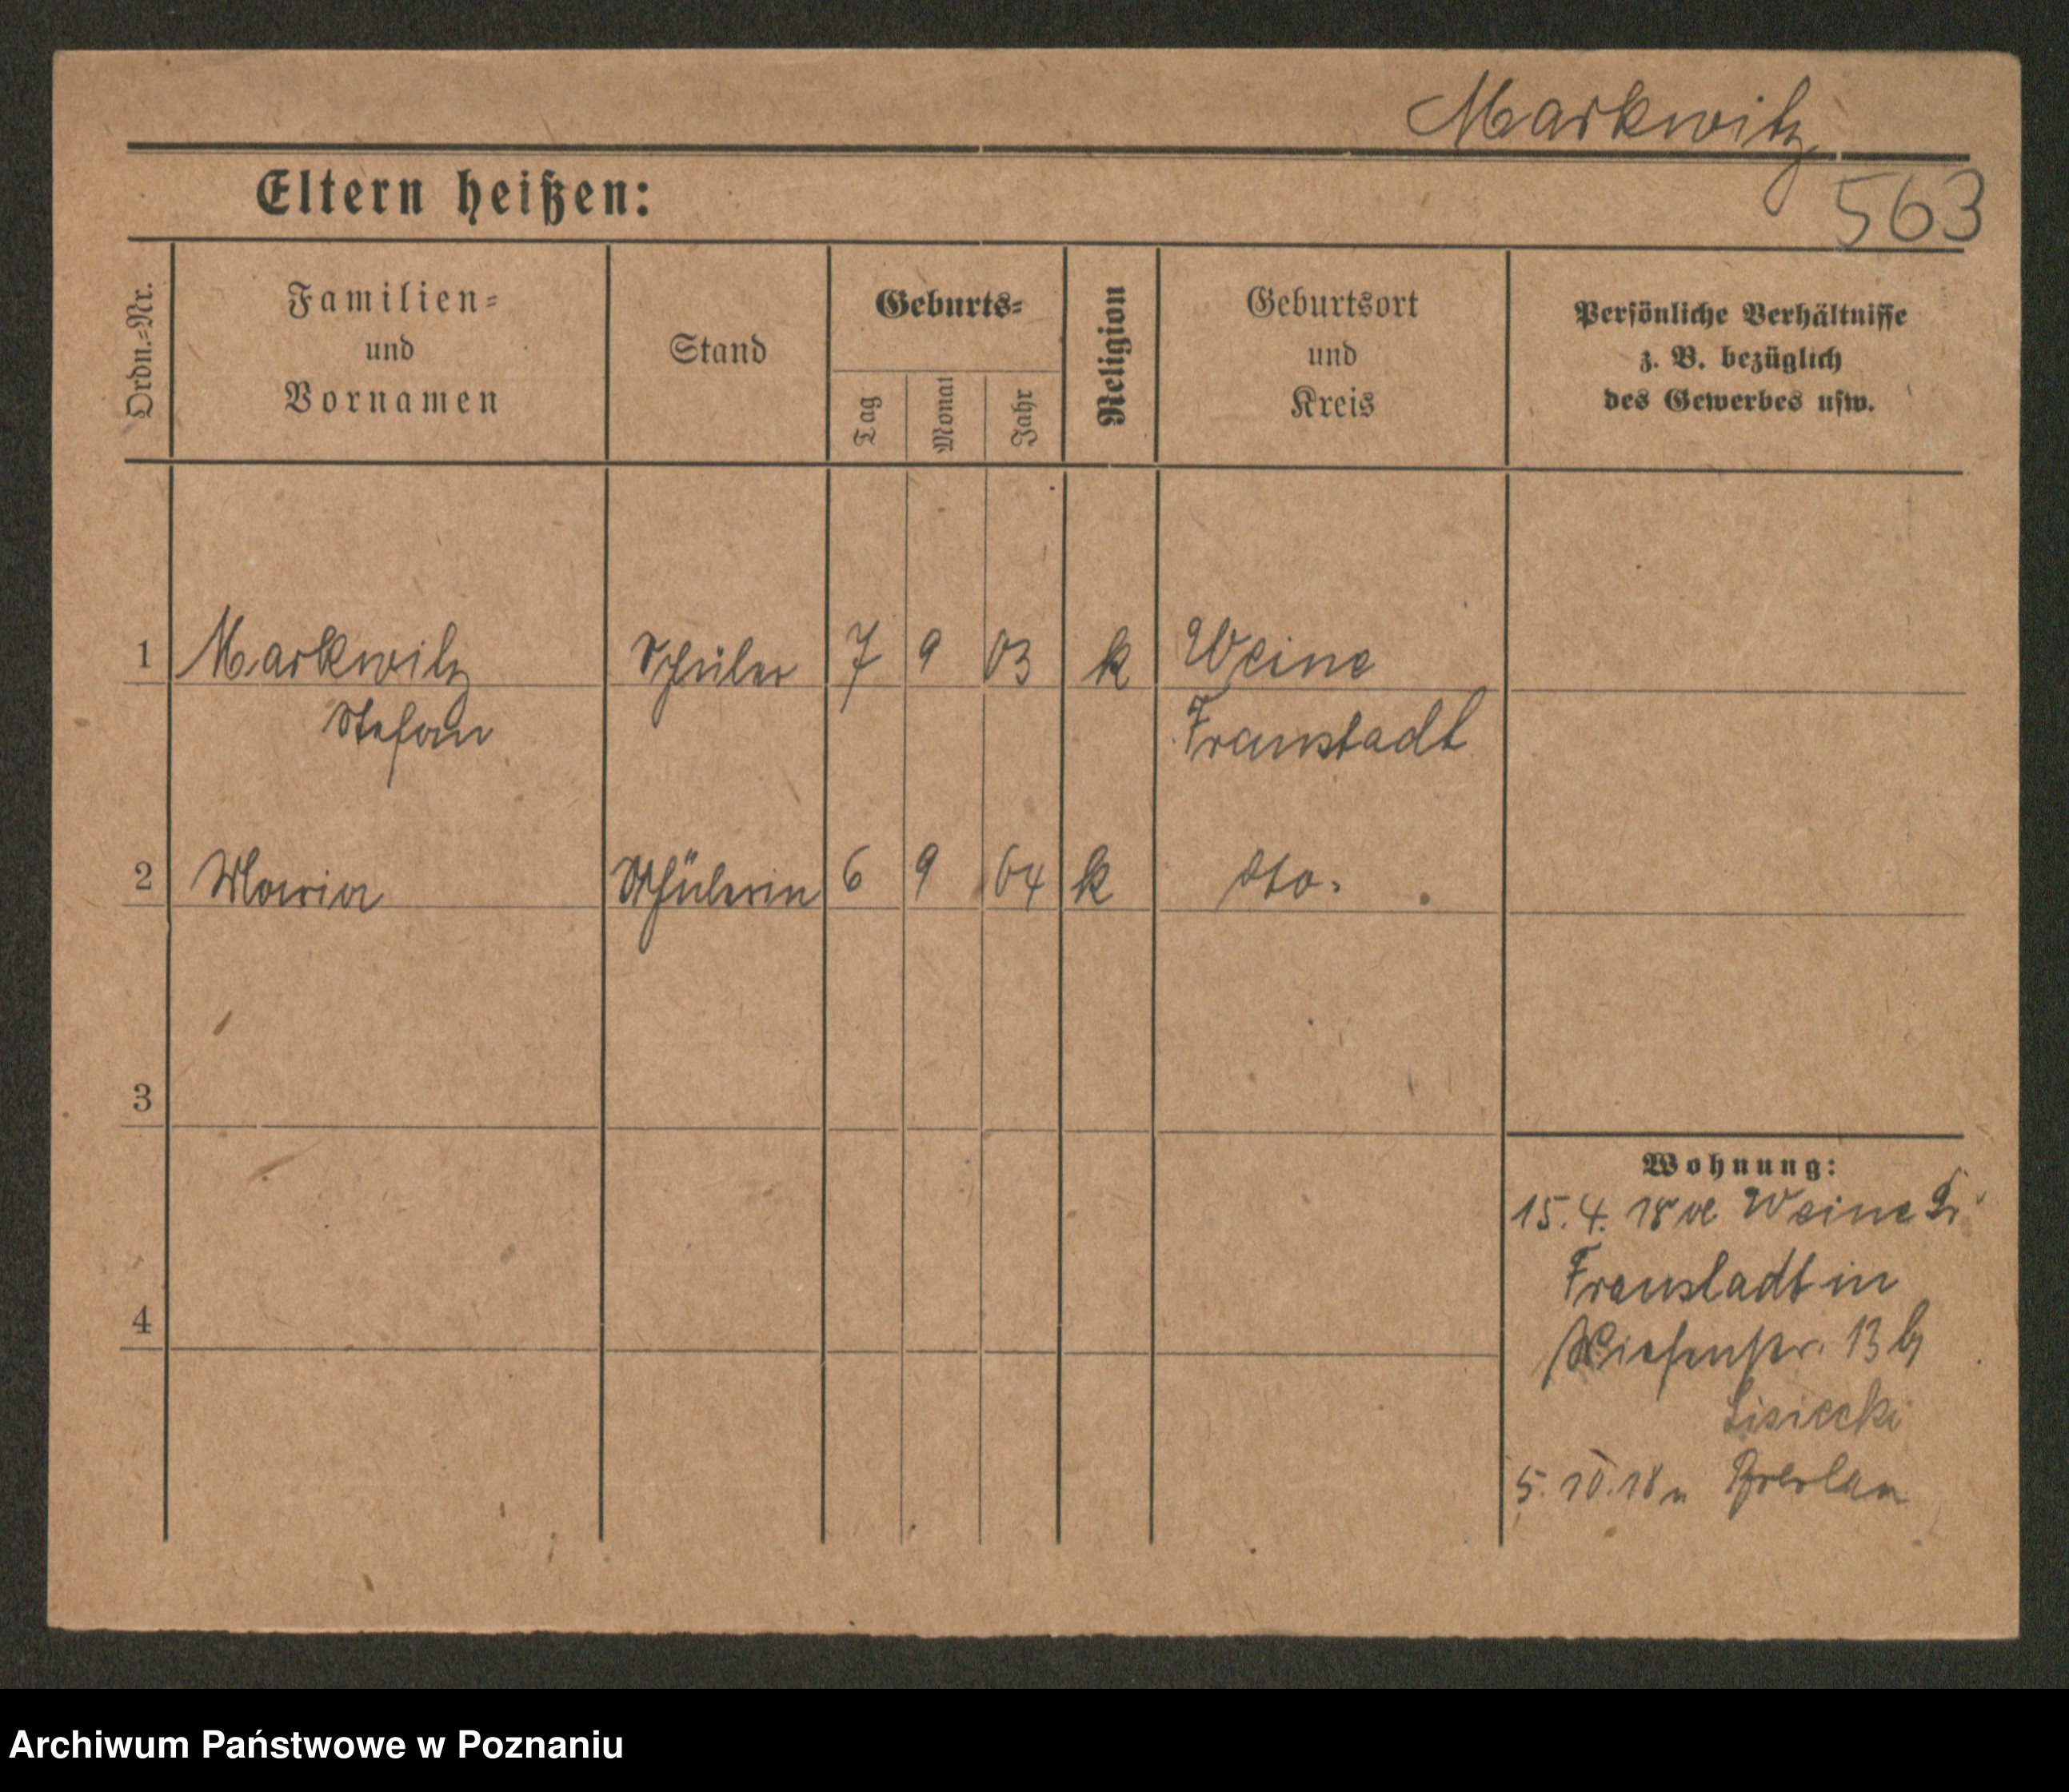 Markwitz
Eltern heißen:
563
Ordn.=Nr.
Familien=
und
Vornamen
Stand
Geburts=
Tag
Monat
Jahr
Religion
Geburtsort
und
Kreis
Persönliche Verhältnisse
z. B. bezüglich
des Gewerbes usw.
1 Markwitz Schüler 7 9 03 k Weine
Stefan Fraustadt
2 Maria Schülerin 6 9 04 k dto.
3
Wohnung:
15. 4. 18 Weine
Fraustadt in
4
Wiesenstr. 13 b
Lisiecki
5. 10. 18 n Breslau
Archiwum Państwowe w Poznaniu